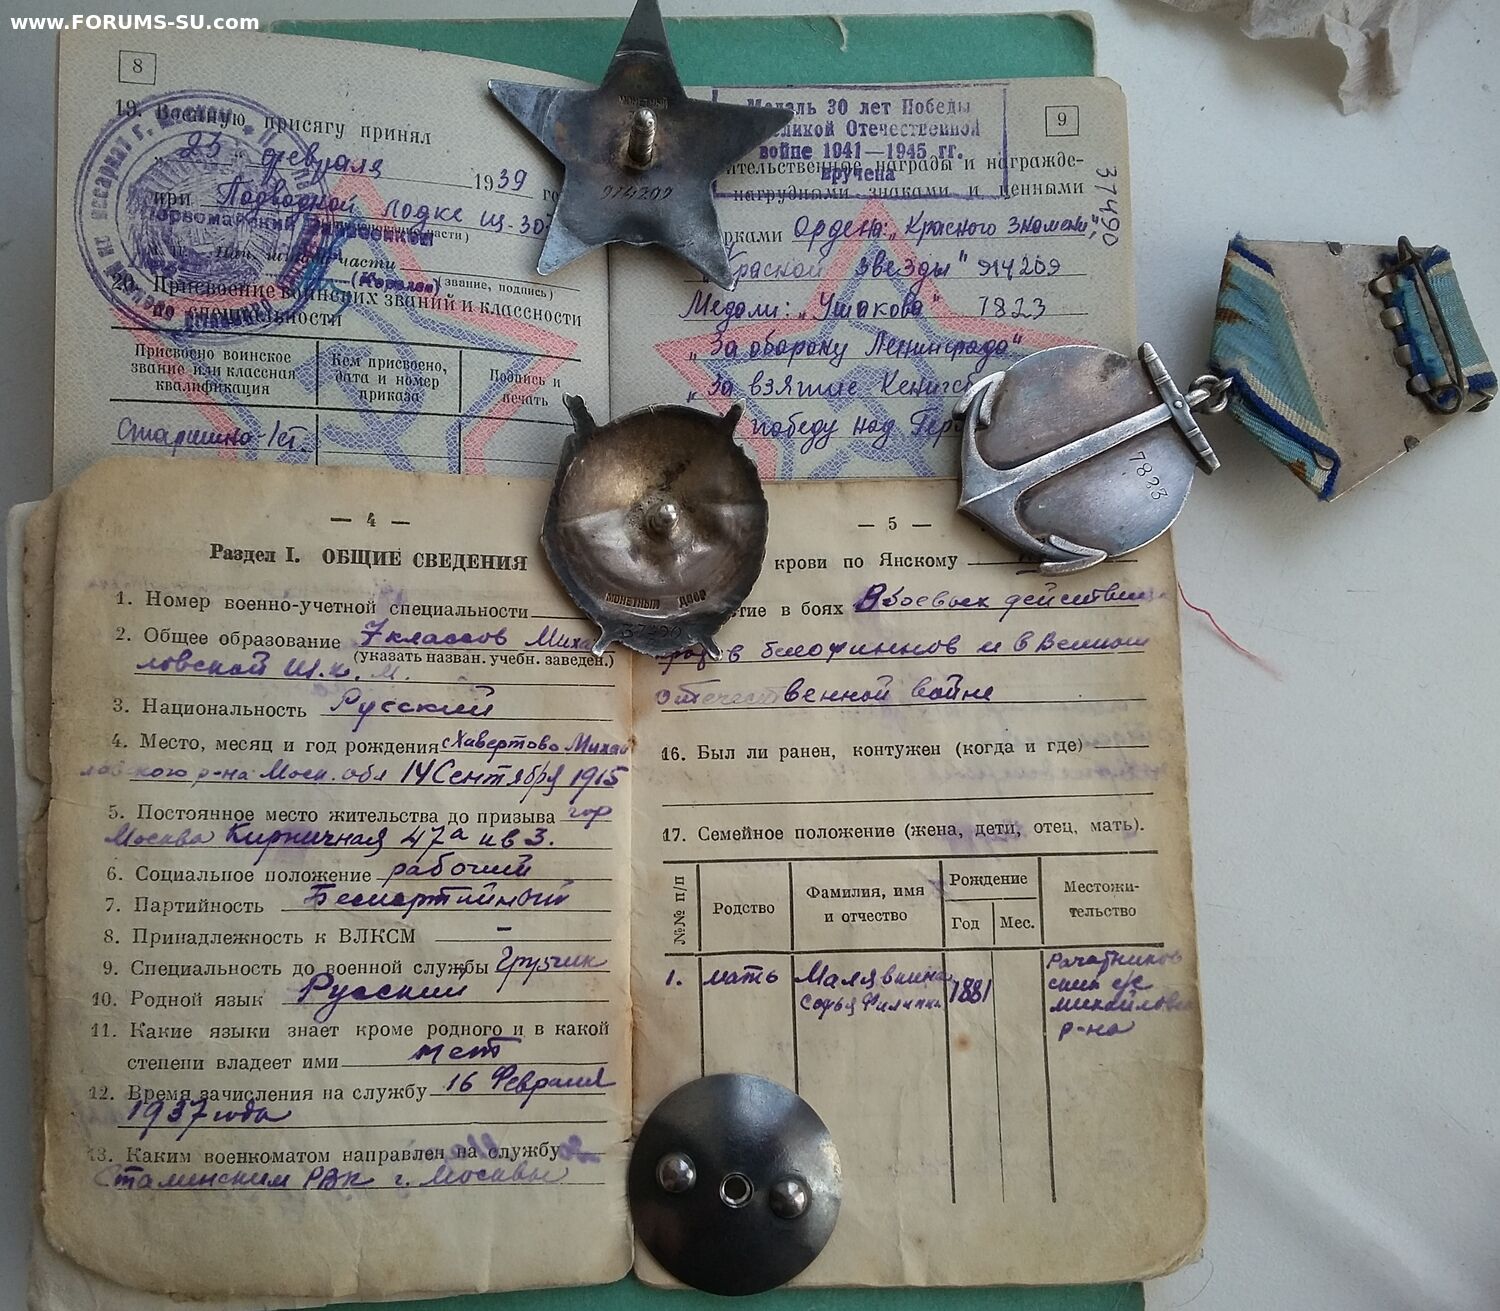 www.FORUMS-SU.com
8
19. Военную присягу принял
„23" февраля 1939 го
при Подводной лодке Щ-30
Первомайский
части)
части
(звание, подпись)
20. Присвоение воинских званий и классности
по специальности
Присвоено воинское звание или классная квалификация
Кем присвоено, дата и номер приказа
Подпись и печать
Старшина-1ст.
МОНЕТНЫЙ
914209
Медаль 30 лет Победы
еликой Отечественной
войне 1941—1945 гг.
вручена
9
37490
ительственные награды и награжде-
нагрудными знаками и ценными
рками Ордена: „Красного Знамени",
„Красной Звезды" 914209
Медали: „Ушакова" 7823
„За оборону Ленинграда"
„За взятие Кенигсб
победу над Гер
7823
— 4 —
Раздел I. ОБЩИЕ СВЕДЕНИЯ
1. Номер военно-учетной специальности
2. Общее образование 7 классов Михай
(указать назван. учебн. заведен.)
ловской Ш.
3. Национальность Русский
4. Место, месяц и год рождения с Хавертово Михай
ловского р-на Моск. обл 14 Сентября 1915
5. Постоянное место жительства до призыва гор
Москва Кирпичная 47а кв 3.
6. Социальное положение рабочий
7. Партийность Беспартийный
8. Принадлежность к ВЛКСМ —
9. Специальность до военной службы Грузчик
10. Родной язык Русский
11. Какие языки знает кроме родного и в какой
степени владеет ими нет
12. Время зачисления на службу 16 Февраля
1937 года
13. Каким военкоматом направлен на службу
Сталинским РВК г. Москвы
МОНЕТНЫЙ ДВОР
37490
— 5 —
крови по Янскому
тие в боях В боевых действиях
против белофиннов и в Великой
Отечественной войне
16. Был ли ранен, контужен (когда и где)
17. Семейное положение (жена, дети, отец, мать).
№№ п/п
Родство
Фамилия, имя и отчество
Рождение
Год
Мес.
Местожи-
тельство
1. мать Малявкина 1881
Софья Филипп
Михайловск
р-на